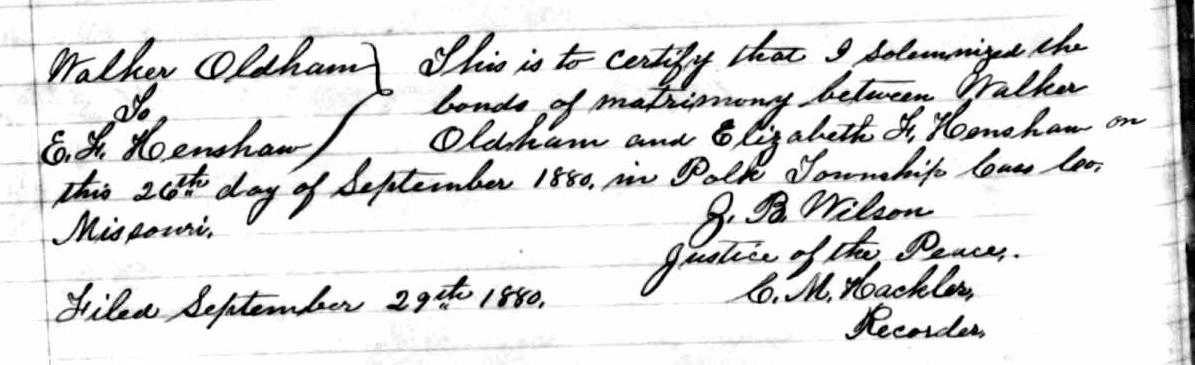 Walker Oldham } This is to certify that I solemnized the
To bonds of matrimony between Walker
E. F. Henshaw Oldham and Elizabeth F. Henshaw on
this 26th day of September 1880. in Polk Township Cass Co.
Missouri. J. B. Wilson
Justice of the Peace.
Filed September 29th 1880. C. M. Hackler,
Recorder,